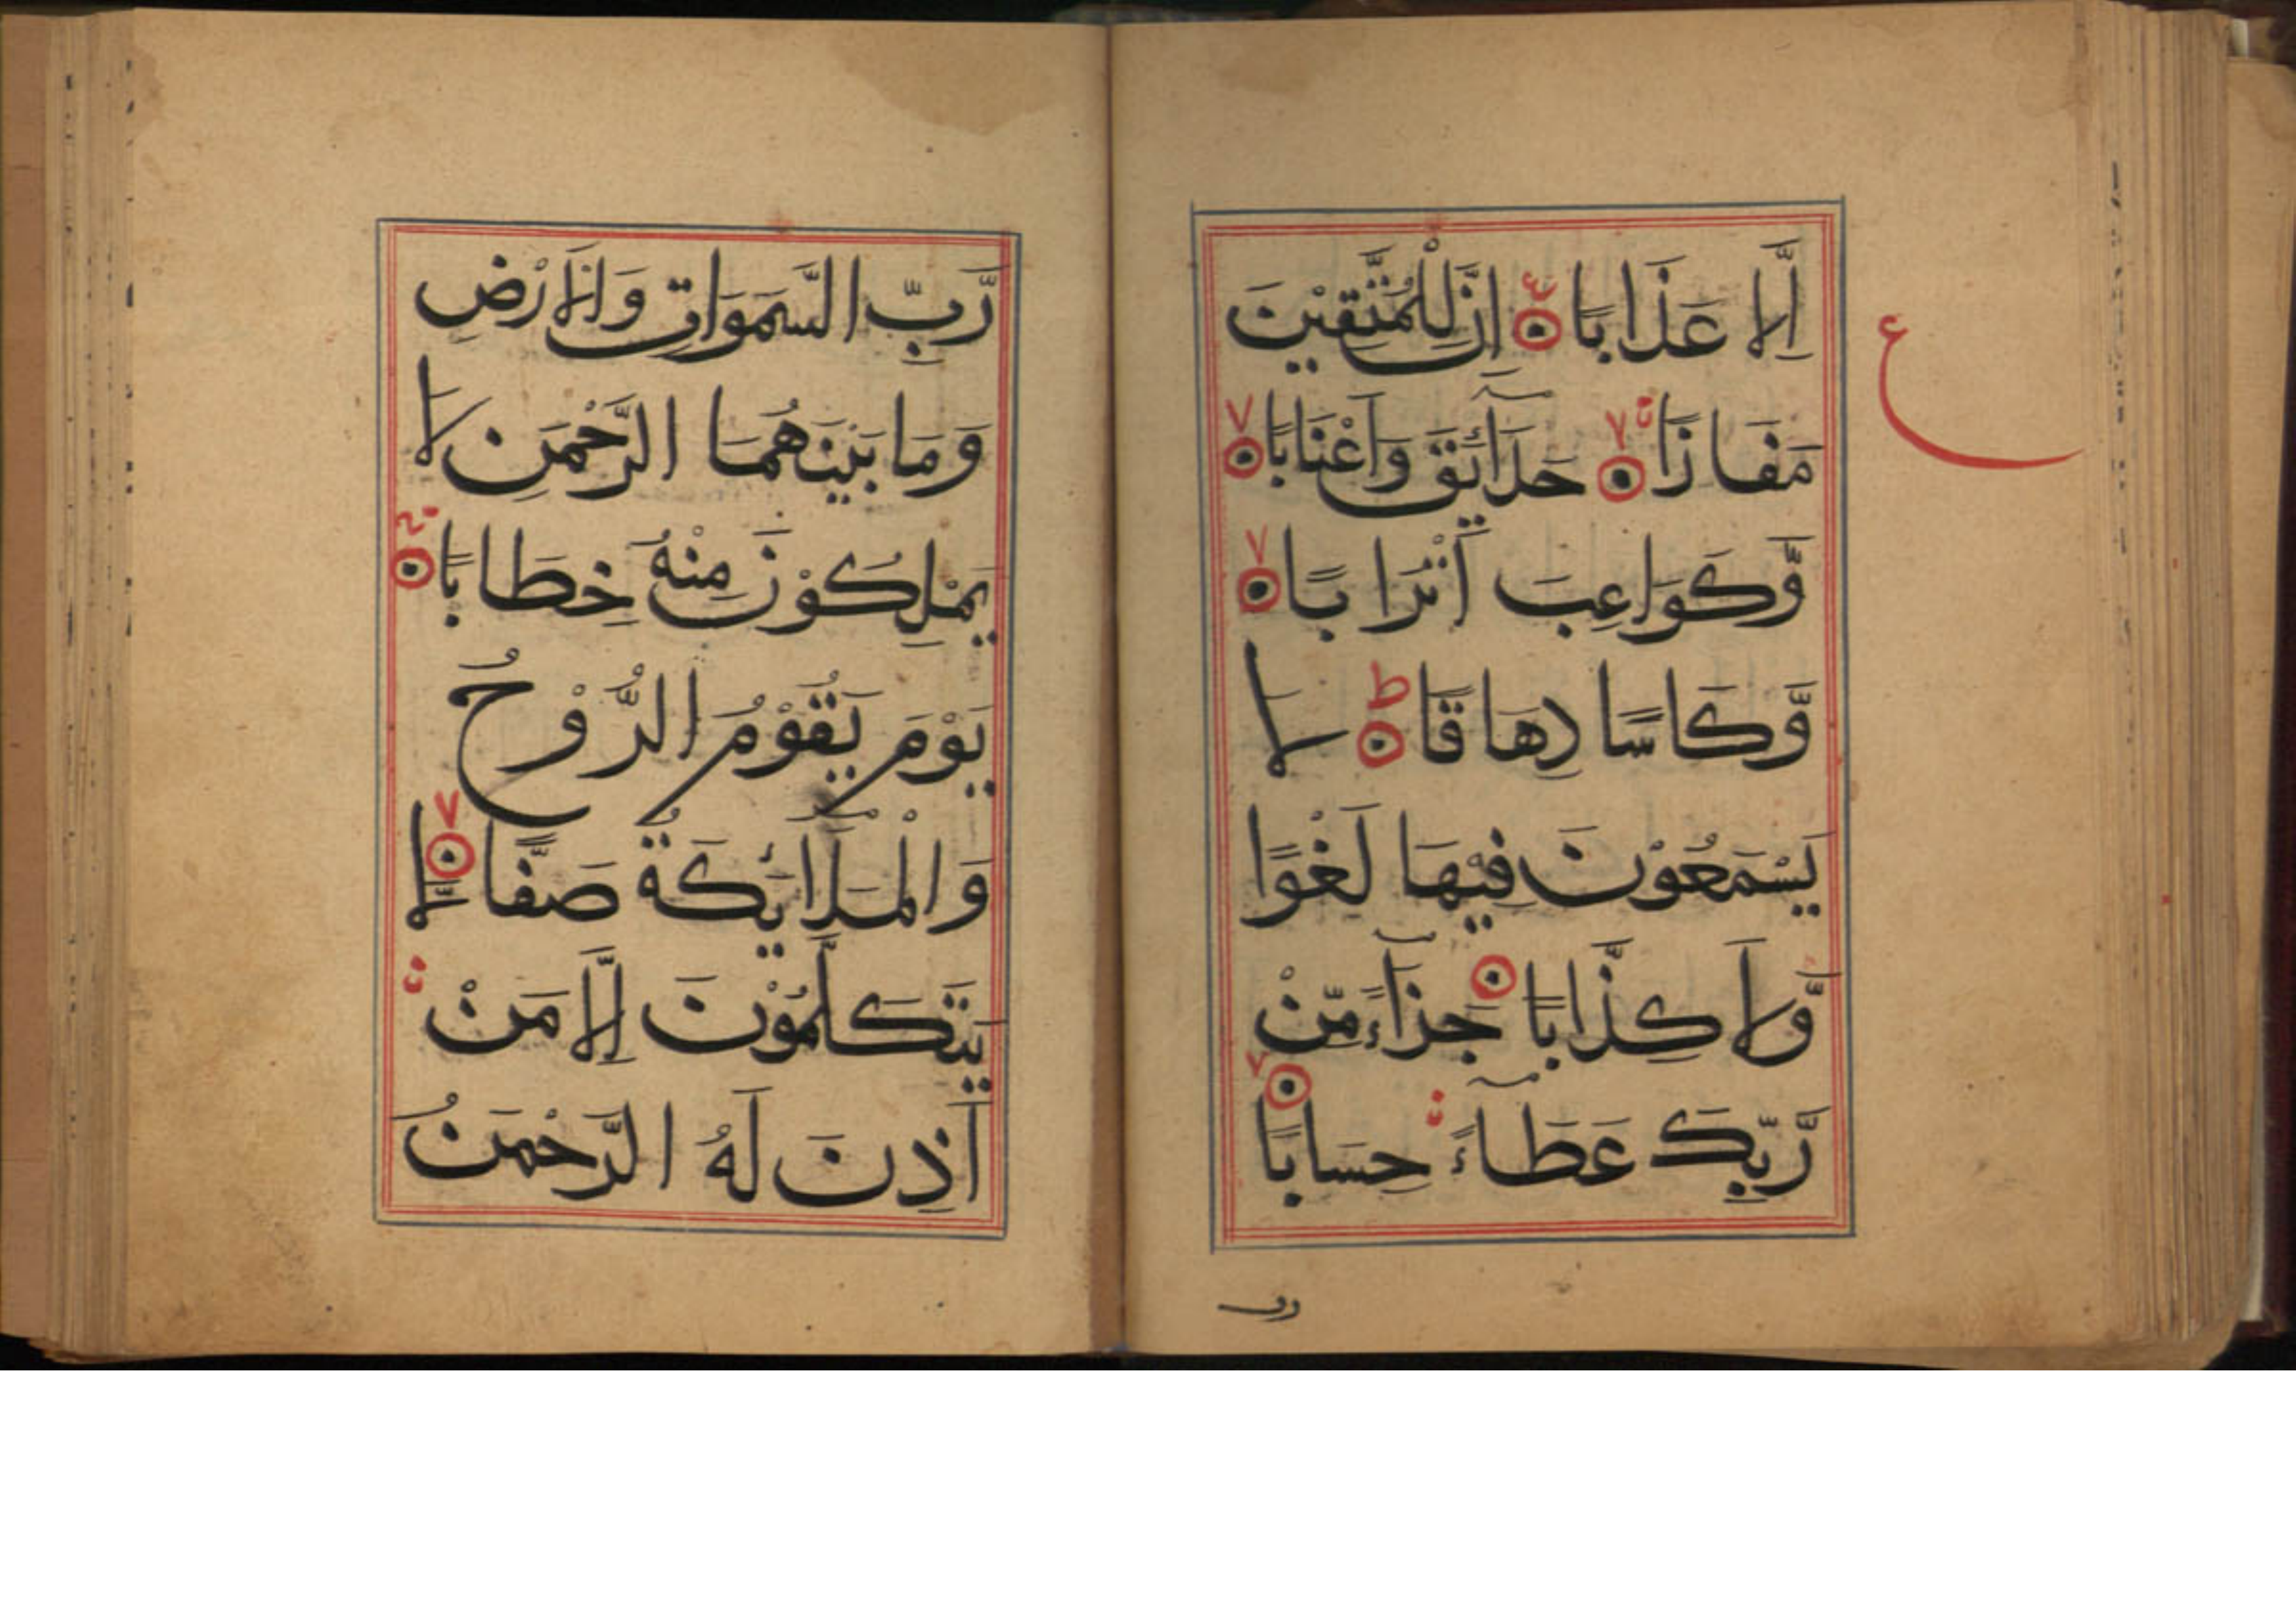 اِلَّا عَذَابًا اِنَّ لِلْمُتَّقِيْنَ
مَفَازًا حَدَآئِقَ وَاَعْنَابًا
وَّكَوَاعِبَ اَتْرَابًا
وَّكَاسًا دِهَاقًا لَا
يَسْمَعُوْنَ فِيْهَا لَغْوًا
وَّلَا كِذَّابًا جَزَآءً مِّنْ
رَّبِّكَ عَطَآءً حِسَابًا
ع
رَّبِّ السَّمَوَاتِ وَالْاَرْضِ
وَمَا بَيْنَهُمَا الرَّحْمَنِ لَا
يَمْلِكُوْنَ مِنْهُ خِطَابًا
يَوْمَ يَقُوْمُ الرُّوْحُ
وَالْمَلَآئِكَةُ صَفًّا لَّا
يَتَكَلَّمُوْنَ اِلَّا مَنْ
اَذِنَ لَهُ الرَّحْمَنُ